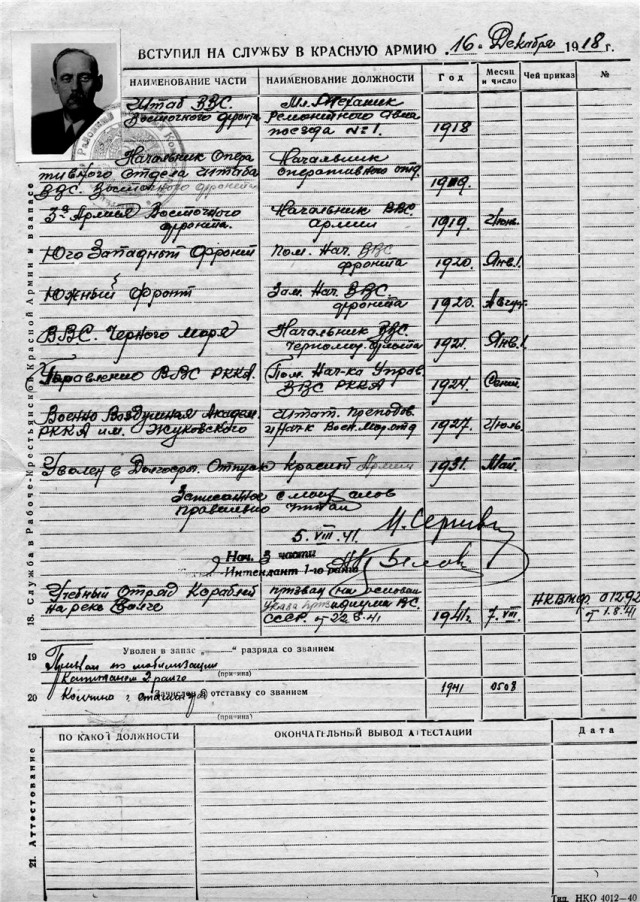 ВСТУПИЛ НА СЛУЖБУ В КРАСНУЮ АРМИЮ „16“ Декабря 1918 г.
НАИМЕНОВАНИЕ ЧАСТИ НАИМЕНОВАНИЕ ДОЛЖНОСТИ Год Месяц и число Чей приказ №
Штаб ВВС. Мл. Механик
Восточного фронта Ремонтного авиа
поезда № 1. 1918
Начальник Опера Начальник
тивного отдела штаба оперативного отд.
ВВС. Восточного фронта
3я Армия Восточного Начальник ВВС 1919. Июнь.
фронта. Армии
Юго Западный фронт Пом. Нач. ВВС 1920. Янв.
фронта
Южный фронт Зам. Нач. ВВС. 1920. Август
фронта
ВВС. Черного Моря Начальник ВВС 1921. Янв.
Черномор. флота
Управление ВВС РККА. Пом. Нач-ка Упров. 1924.
ВВС РККА
Военно Воздушная Академ. Штат. преподов. 1927. Июль.
РККА им. Жуковского и Нач-к Воен. Мор. отд
Уволен в Долгоср. Отпуск Красной Армии 1931. Май.
Записанное с моих слов
правильно читал
5. VIII. 41.
Нач. 3 части
Интендант 1-го ранга
Учебный Отряд Кораблей призван на основан
на реке Волге Указа Президиума ВС. 1941г. 7. VIII. НКВМФ 01292
СССР. от 22.6.41 от 1.8.41
18. Служба в Рабоче-Крестьянской Красной Армии и в запасе
19 Уволен в запас „——“ разряда со званием
Призван по мобилизации
(причина)
Капитаном 2 ранга
20 Зачислен в отставку со званием 1941 0508
(причина)
21. Аттестование
ПО КАКОЙ ДОЛЖНОСТИ ОКОНЧАТЕЛЬНЫЙ ВЫВОД АТТЕСТАЦИИ Дата
Тип. НКО 4012—40